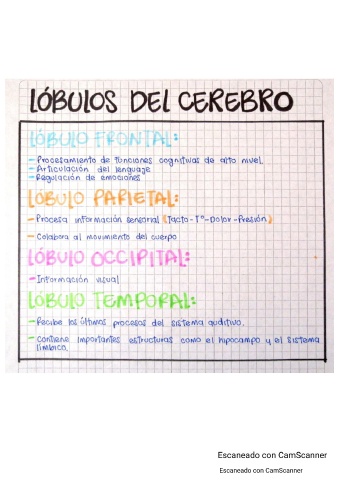 LÓBULOS DEL CEREBRO
LÓBULO FRONTAL:
- Procesamiento de funciones cognitivas de alto nivel
- Articulación del lenguage
- Regulación de emociones
LÓBULO PARIETAL:
- Procesa información sensorial (Tacto-T°-Dolor-Presión)
- Colabora al movimiento del cuerpo
LÓBULO OCCIPITAL:
- Información visual
LÓBULO TEMPORAL:
- Recibe los últimos procesos del sistema auditivo.
- Contiene importantes estructuras como el hipocampo y el sistema
límbico.
Escaneado con CamScanner
Escaneado con CamScanner